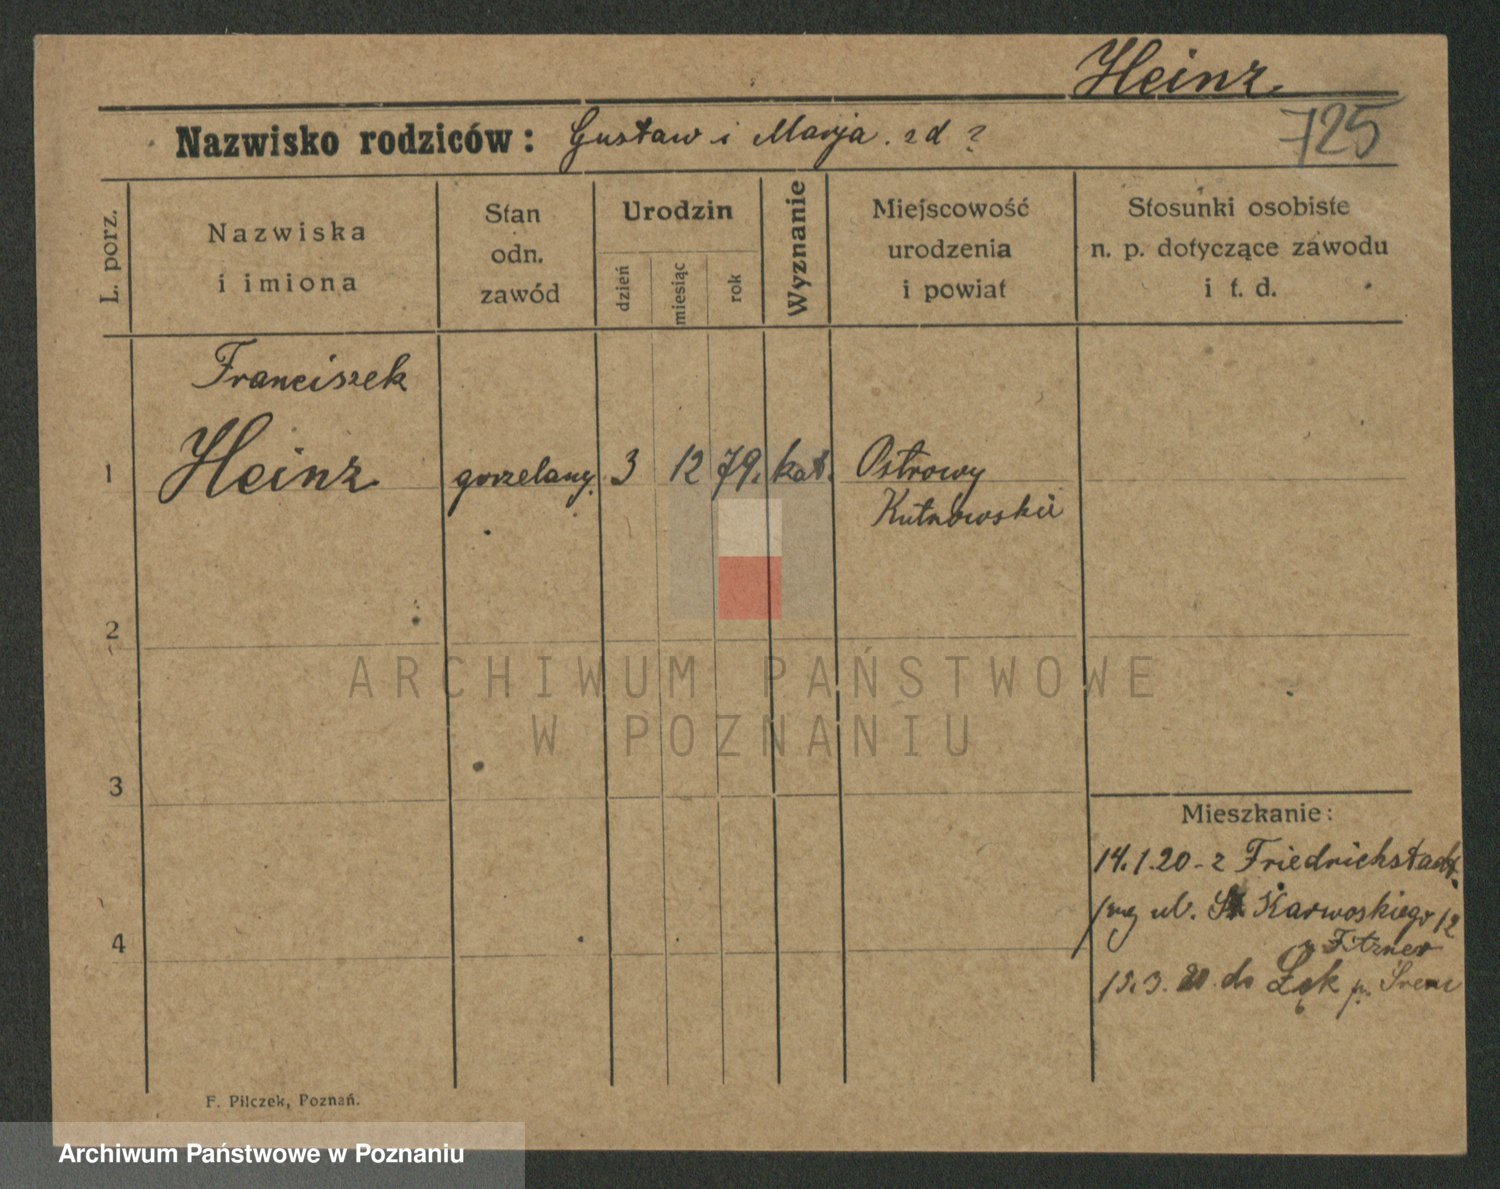 Heinz.
Nazwisko rodziców: Gustaw i Marja. zd ?
725
L. porz.
Nazwiska
i imiona
Stan
odn.
zawód
Urodzin
dzień
miesiąc
rok
Wyznanie
Miejscowość
urodzenia
i powiat
Stosunki osobiste
n. p. dotyczące zawodu
i t. d.
Franciszek
1 Heinz gorzelany. 3 12 79. kat. Ostrowy
Kutnowskie
2
3
4
Mieszkanie:
14.1.20 - z Friedrichstadt.
ul. St. Karwoskiego 12
Fitzner
15.3.20. do Łęk p. Śrem
F. Pilczek, Poznań.
ARCHIWUM PAŃSTWOWE
W POZNANIU
Archiwum Państwowe w Poznaniu